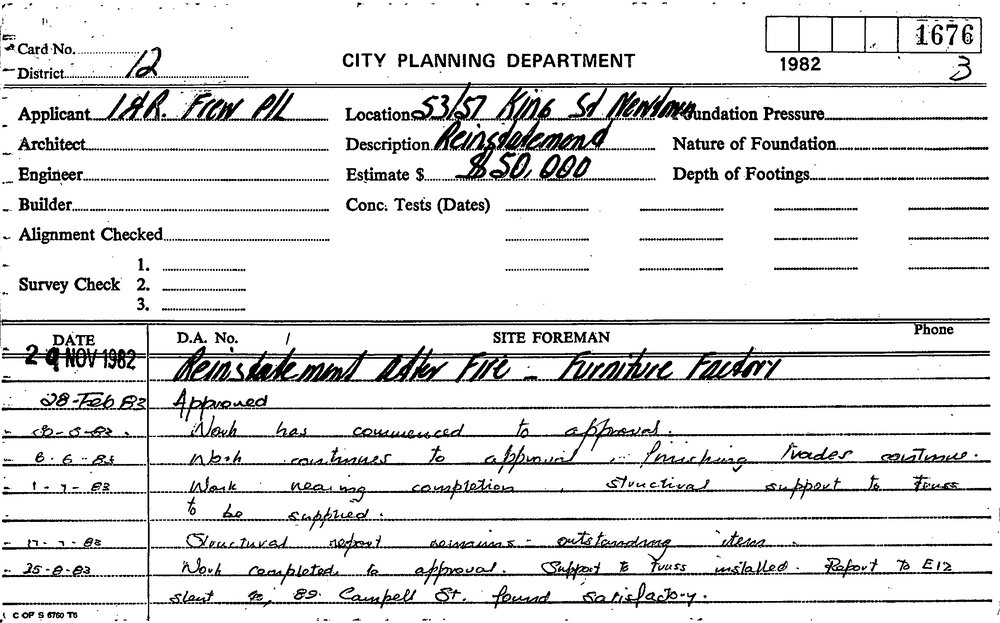 Card No. 1676
District 12 CITY PLANNING DEPARTMENT 1982 3
Applicant I & R. Frew P/L Location 53/57 King St Newtown Foundation Pressure
Architect Description Reinstatement Nature of Foundation
Engineer Estimate $ $50,000 Depth of Footings
Builder Conc. Tests (Dates)
Alignment Checked
1.
Survey Check 2.
3.
DATE D.A. No. / SITE FOREMAN Phone
29 NOV 1982 Reinstatement After Fire - Furniture Factory
28-Feb 83 Approved
-83. Work has commenced to approval.
6-6-83 Work continues to approval. Finishing trades continue.
1-7-83 Work nearing completion. structural support to truss
to be supplied.
-7-83 Structural report remains - outstanding item.
25-8-83 Work completed to approval. Support to truss installed. Report to E12
sent to, 89 Campell St. found satisfactory.
C OP S 6760 T6